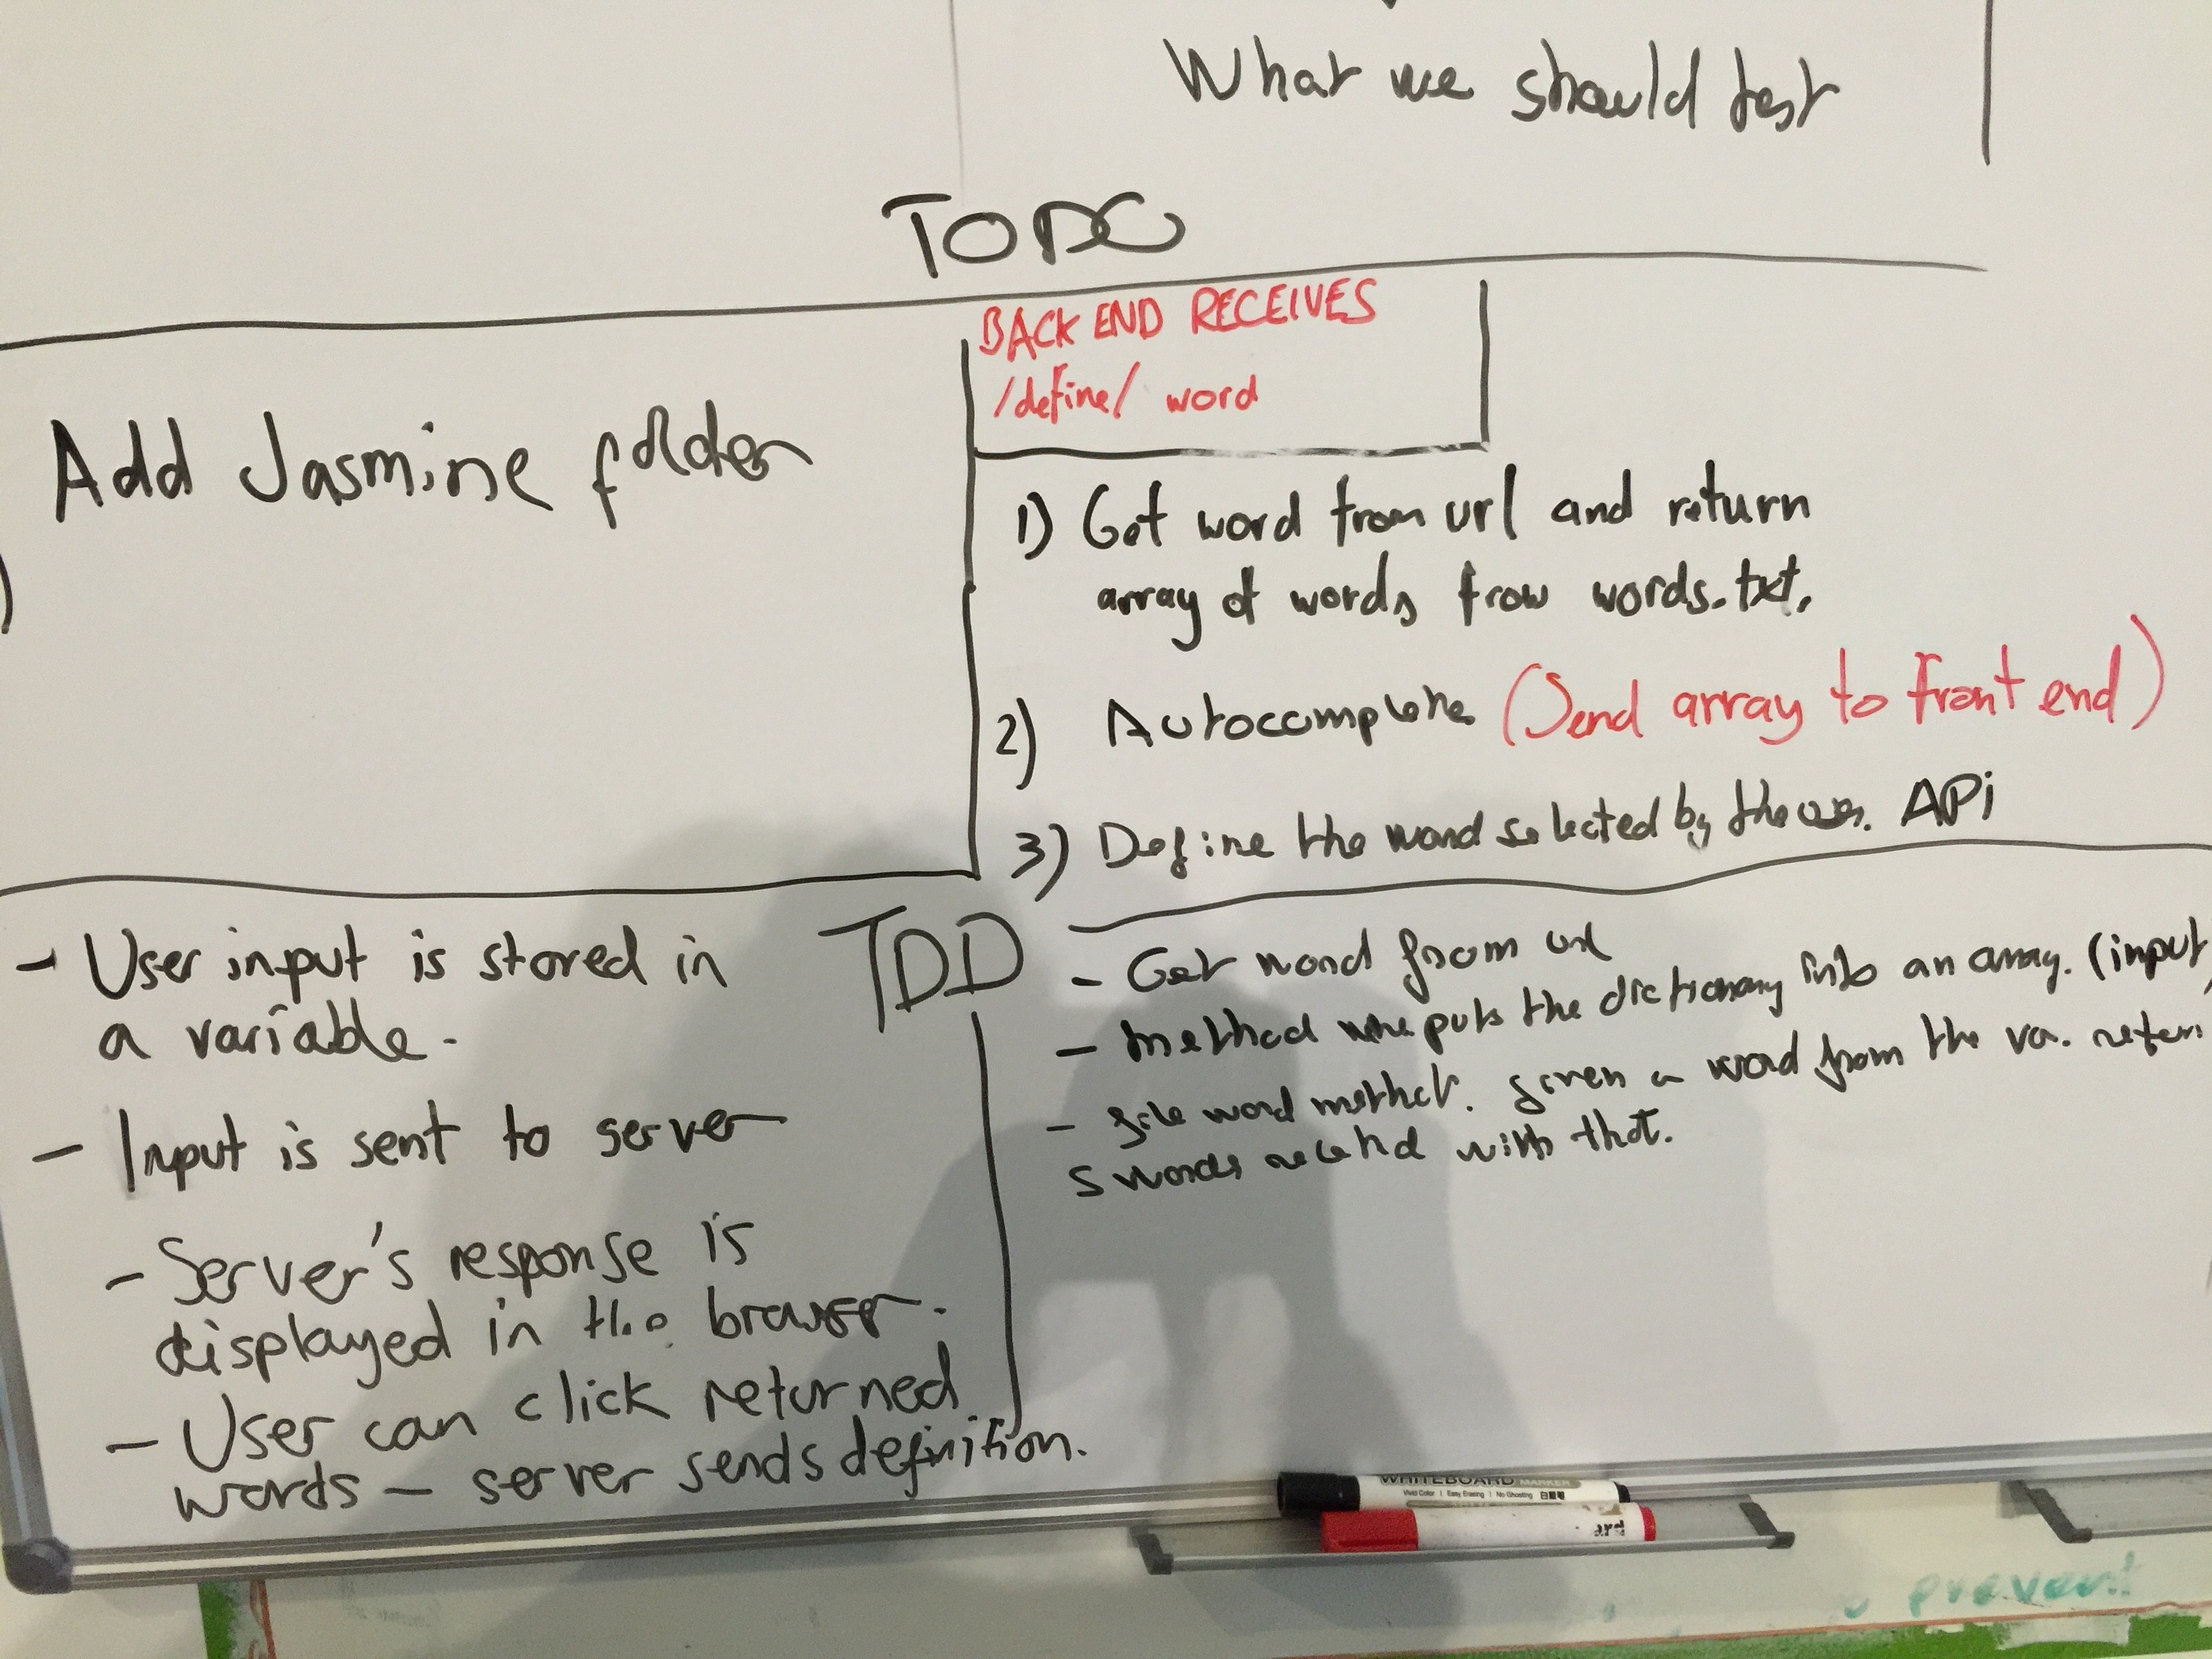 What we should test
TODO
BACK END RECEIVES
/define/ word
Add Jasmine folder
1) Get word from url and return
array of words from words.txt.
2) Autocomplete (Send array to front end)
3) Define the word selected by the user. API
TDD
- User input is stored in
a variable.
- Input is sent to server
- Server's response is
displayed in the browser.
- User can click returned
words - server sends definition.
- Get word from url
- method puts the dictionary into an array. (input
- word method. given a word from the va.
5 words with that.
WHITEBOARD MARKER
Vivid Color | Easy Erasing | No Ghosting
prevent